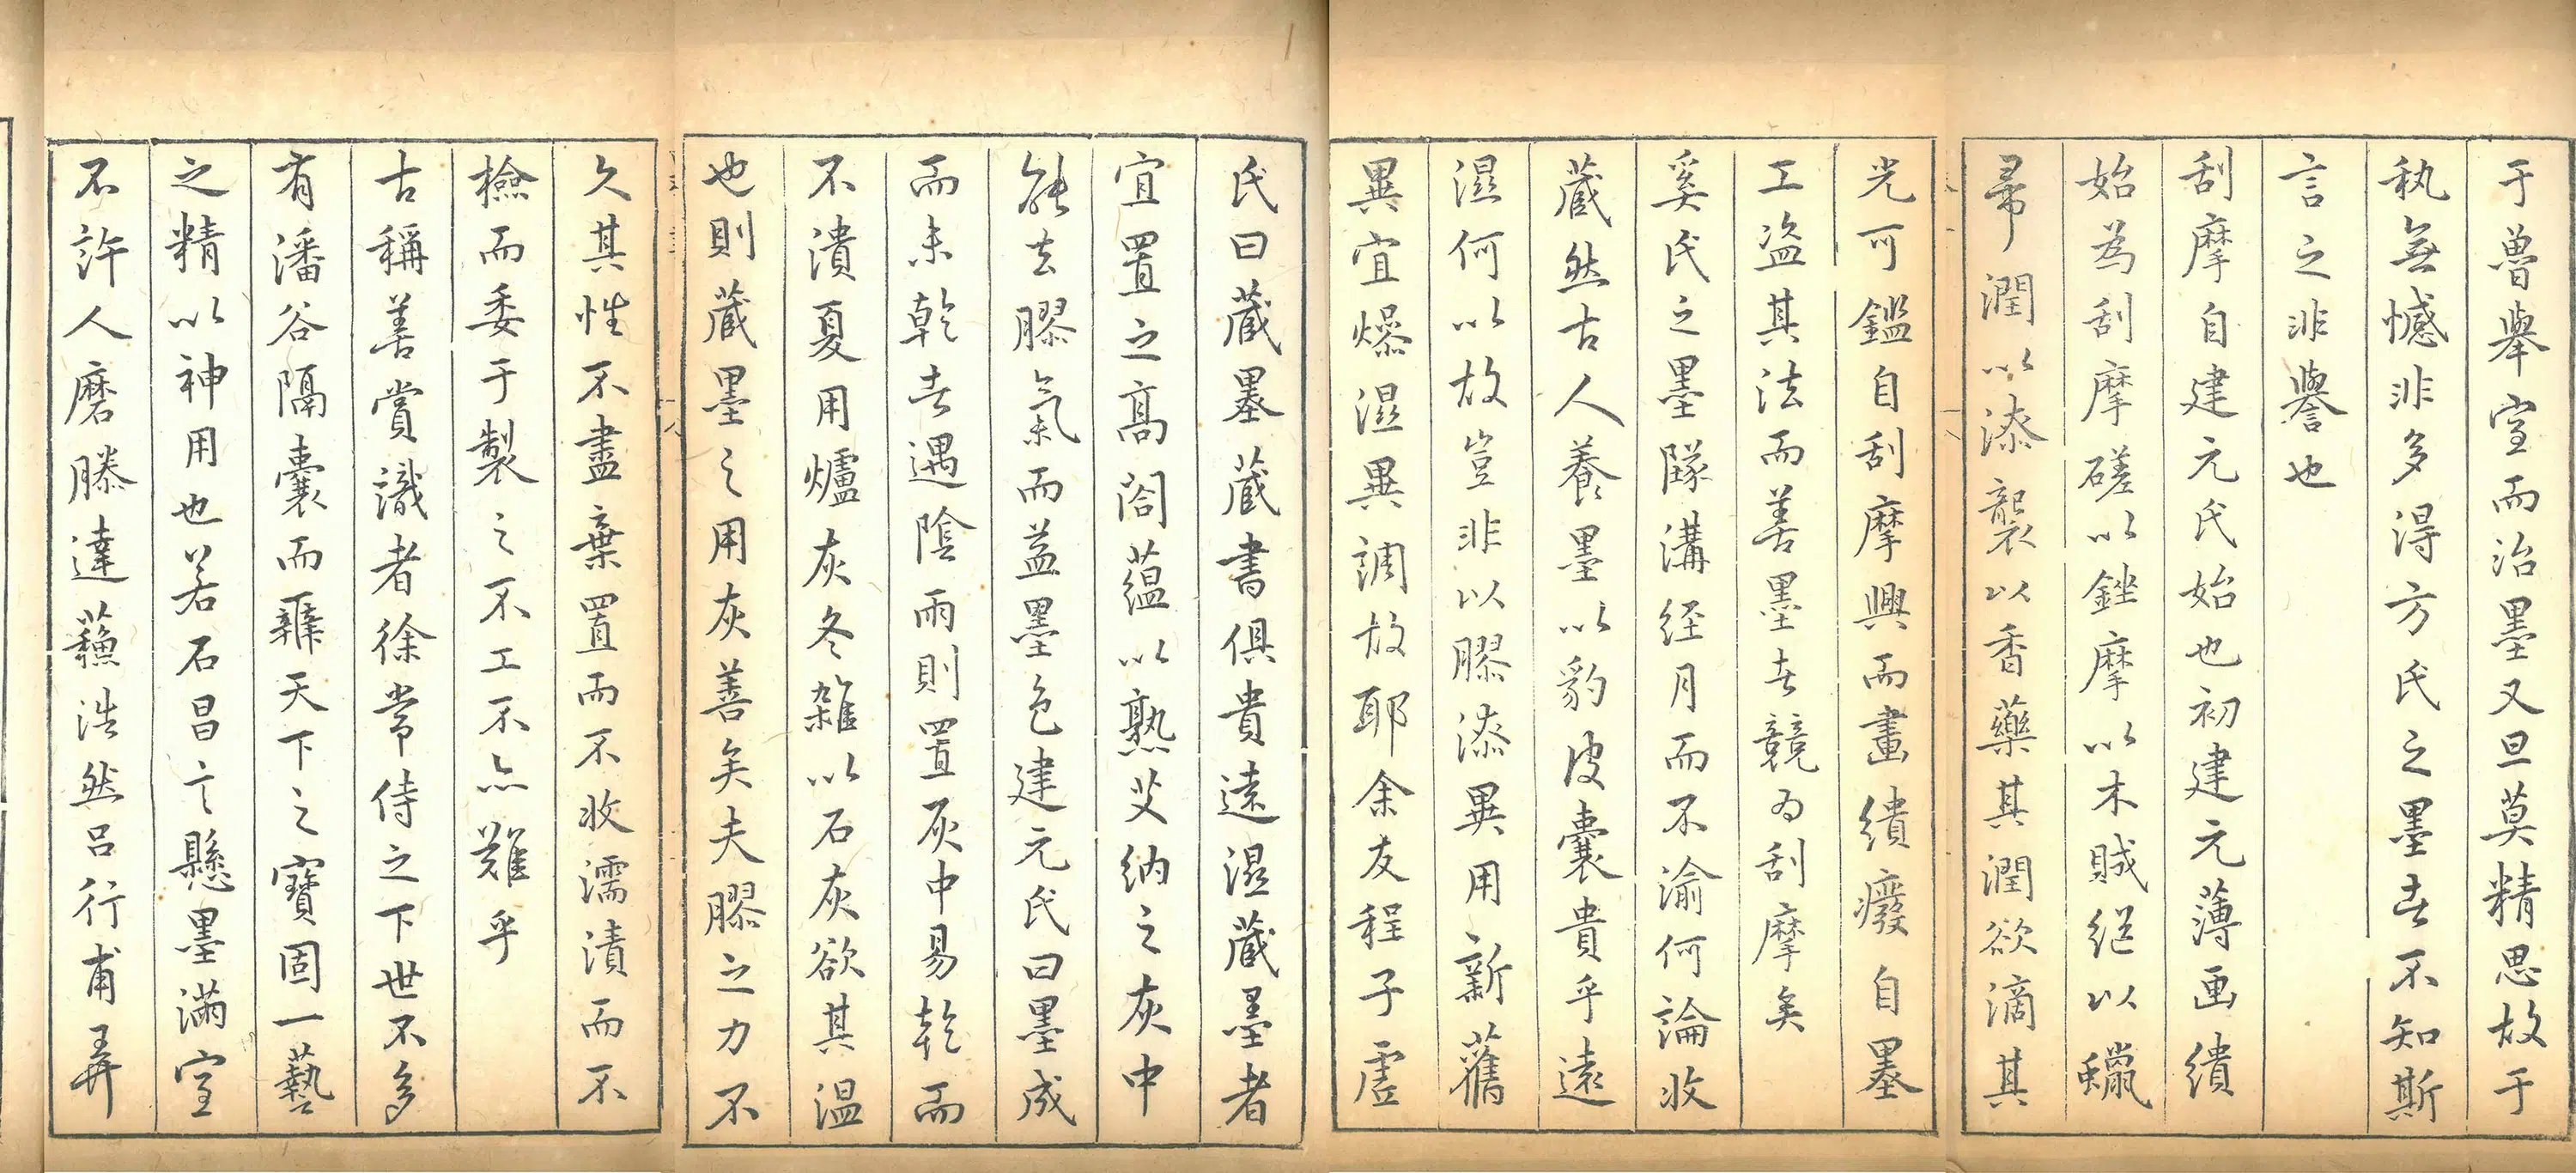 于魯舉室而治墨又旦莫精思故于
執無憾非多得方氏之墨者不知斯
言之非譽也
刮摩自建元氏始也初建元薄画繢
始為刮摩磋以銼摩以木賊繼以蠟
帚潤以漆襲以香藥其潤欲滴其
光可鑑自刮摩興而畫繢癈自墨
工盗其法而善墨者競為刮摩矣
奚氏之墨隊溝經月而不渝何論收
藏然古人養墨以豹皮囊貴乎遠
濕何以故豈非以膠漆異用新舊
異宜燥濕異調故耶余友程子虛
氏曰藏墨藏書俱貴遠濕藏墨者
宜置之高閣蘊以熟艾納之灰中
能去膠氣而益墨色建元氏曰墨成
而未乾者遇陰雨則置灰中易乾而
不潰夏用爐灰冬雜以石灰欲其温
也則藏墨之用灰善矣夫膠之力不
久其性不盡棄置而不收濡漬而不
檢而委于製之不工不亦難乎
古稱善賞識者徐常侍之下世不多
有潘谷隔囊而辨天下之寶固一藝
之精以神用也若石昌言懸墨滿室
不許人磨滕達蘓浩然呂行甫弄